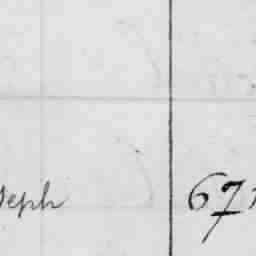 seph 67